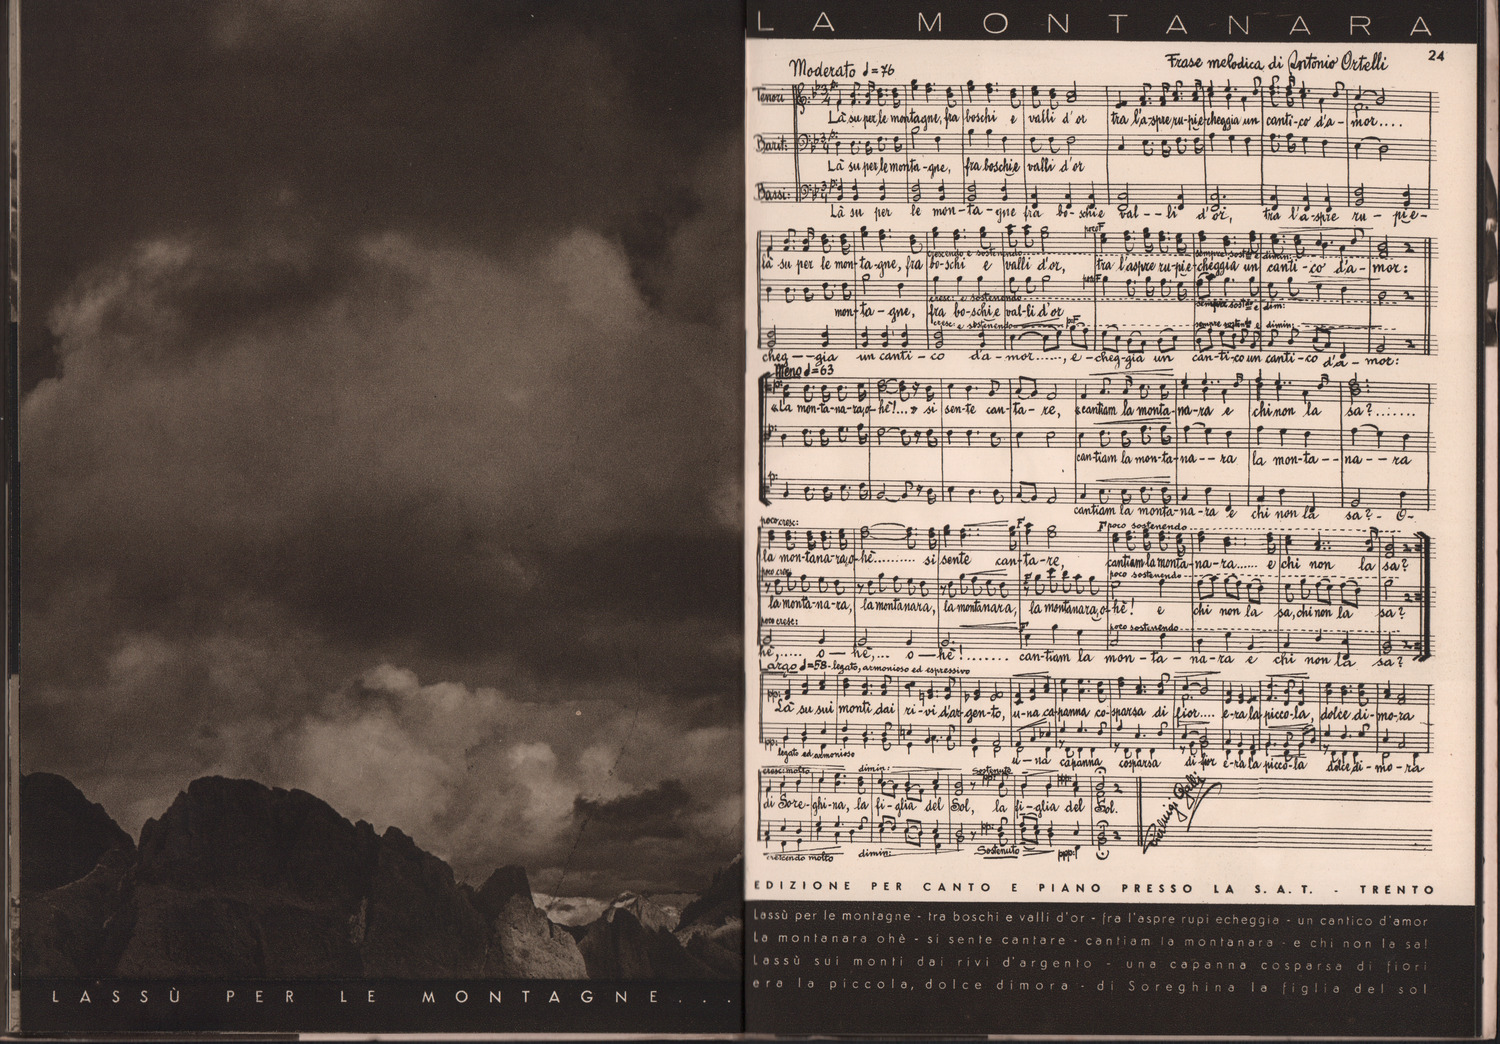 LASSÙ PER LE MONTAGNE...
LA MONTANARA
24
Moderato ♩=76
Frase melodica di Antonio Ortelli
Tenori
Là su per le montagne, fra boschi e valli d'or tra l'a-spre ru-pi e-cheggia un canti-co d'a-mor....
Barit:
Là su per le monta-gne, fra boschi e valli d'or
Bassi:
Là su per le mon-ta-gne fra bo-schi e val--li d'or, tra l'a-spre ru-pi e-
poco F
crescendo e sostenendo
sempre sostto e dimin:
là su per le mon-ta-gne, fra bo-schi e valli d'or, tra l'aspre ru-pi e-cheggia un canti-co d'a-mor:
poco F
cresc: e sostenendo
sempre sostto e dim:
mon-ta-gne, fra bo-schi e val-li d'or
cresc: e sostenendo
sempre sostento e dimin:
cheg--gia un canti-co d'a-mor....., e-cheg-gia un can-ti-co un canti-co d'a-mor:
Meno ♩=63
«La mon-ta-na-ra, o-hè!...» si sen-te can-ta-re, «cantiam la monta-na-ra e chi non la sa?.......
can-tiam la mon-ta-na--ra la mon-ta--na--ra
cantiam la monta-na-ra e chi non la sa?- O-
poco cresc:
F
F poco sostenendo
la mon-tana-ra, o-hè.......... si sente can-ta-re, cantiam la monta-na-ra...... e chi non la sa?
poco cresc:
poco sostenendo
la monta-na-ra, la montanara, la montanara, la montanara, o-hè! e chi non la sa, chi non la sa?
poco cresc:
F
poco sostenendo
hè,..... o-hè,... o-hè!....... can-tiam la mon-ta-na-ra e chi non la sa?
Largo ♩=58-legato, armonioso ed espressivo
pp:
Là su sui monti dai ri-vi d'ar-gen-to, u-na capanna co-sparsa di fior.... e-ra la picco-la, dolce di-mo-ra
pp:
legato ed armonioso
u-na capanna cosparsa di fior e-ra la picco-la dolce di-mo-ra
cresc: molto dimin: Sostenuto pp: ppp:
di Sore-ghi-na, la fi-glia del Sol, la fi-glia del Sol.
crescendo molto dimin: pp: Sostenuto ppp:
Pierluigi Galli
EDIZIONE PER CANTO E PIANO PRESSO LA S.A.T. - TRENTO
Lassù per le montagne - tra boschi e valli d'or - fra l'aspre rupi echeggia - un cantico d'amor
La montanara ohè - si sente cantare - cantiam la montanara - e chi non la sa!
Lassù sui monti dai rivi d'argento - una capanna cosparsa di fiori
era la piccola, dolce dimora - di Soreghina la figlia del sol